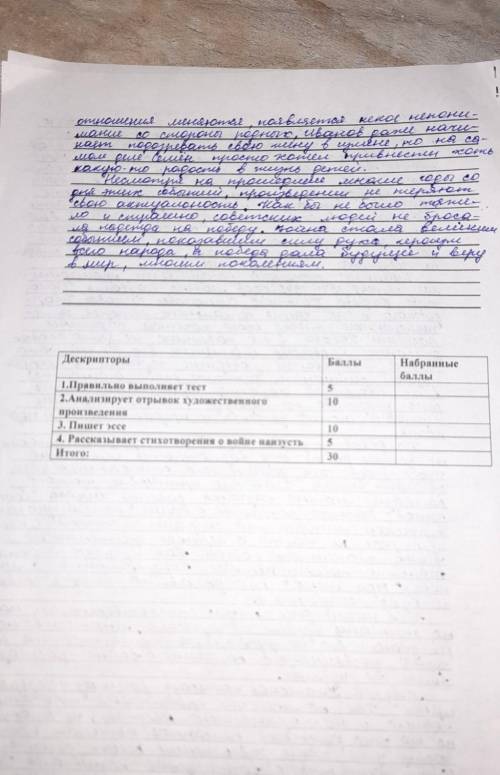 отношения меняются, появляется некое непони-
мание со стороны родных. Иванов даже начи-
нает подозревать свою жену в измене, но на са-
мом деле Семён просто хотел привнести хоть
какую-то радость в жизнь детей.
Несмотря на прошедшие многие годы со
дня этих событий, произведения не теряют
свою актуальность. Как бы не было тяже-
ло и страшно, советских людей не броса-
ла надежда на победу. Война стала великим
событием, показавшим силу духа, героизм
всего народа, а победа дала будущее и веру
в мир, многим поколениям.
Дескрипторы Баллы Набранные баллы
1.Правильно выполняет тест 5
2.Анализирует отрывок художественного 10
произведения
3. Пишет эссе 10
4. Рассказывает стихотворения о войне наизусть 5
Итого: 30